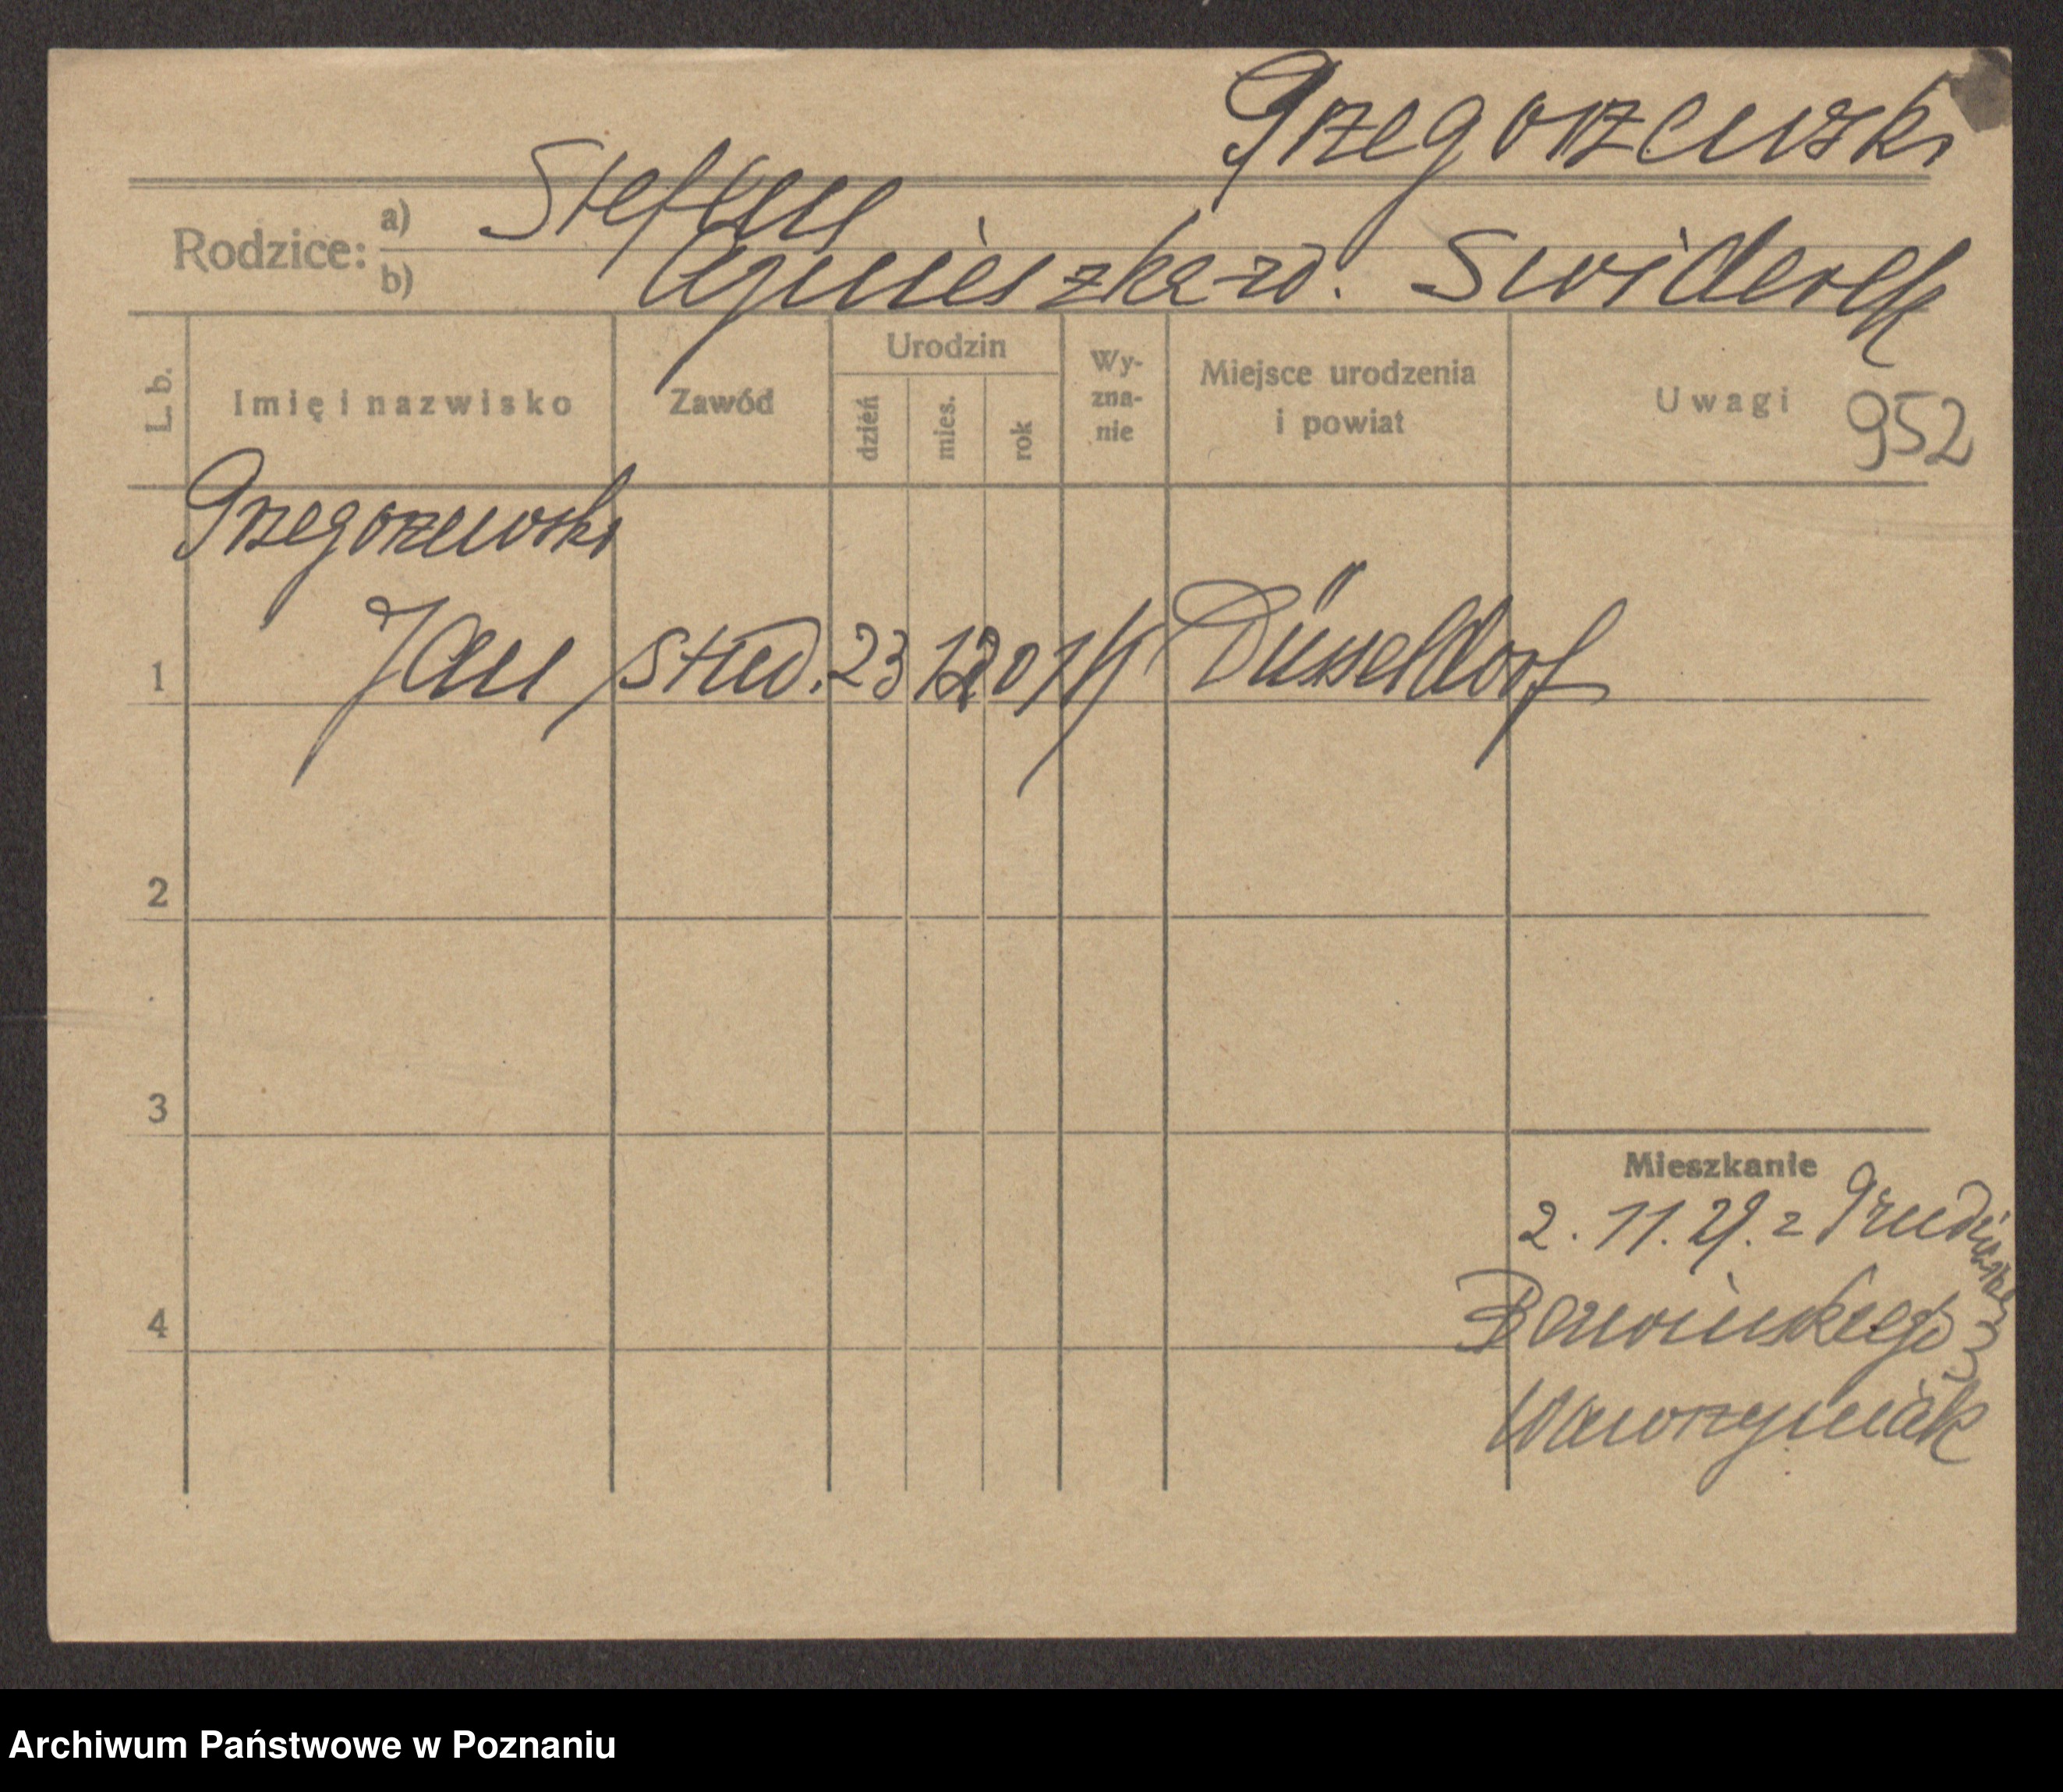 Grzegorzewski
Rodzice: a) Stefan
b) Agnieszka zd. Swiderek
L. b.
Imię i nazwisko
Zawód
Urodzin
dzień
mies.
rok
Wy-
zna-
nie
Miejsce urodzenia
i powiat
Uwagi
952
Grzegorzewski
1 Jan stud. 23 12 01 Düsseldorf
2
3
4
Mieszkanie
2. 11. 29. z Grudziądza
Berwińskiego 3
Wawrzyniak
Archiwum Państwowe w Poznaniu